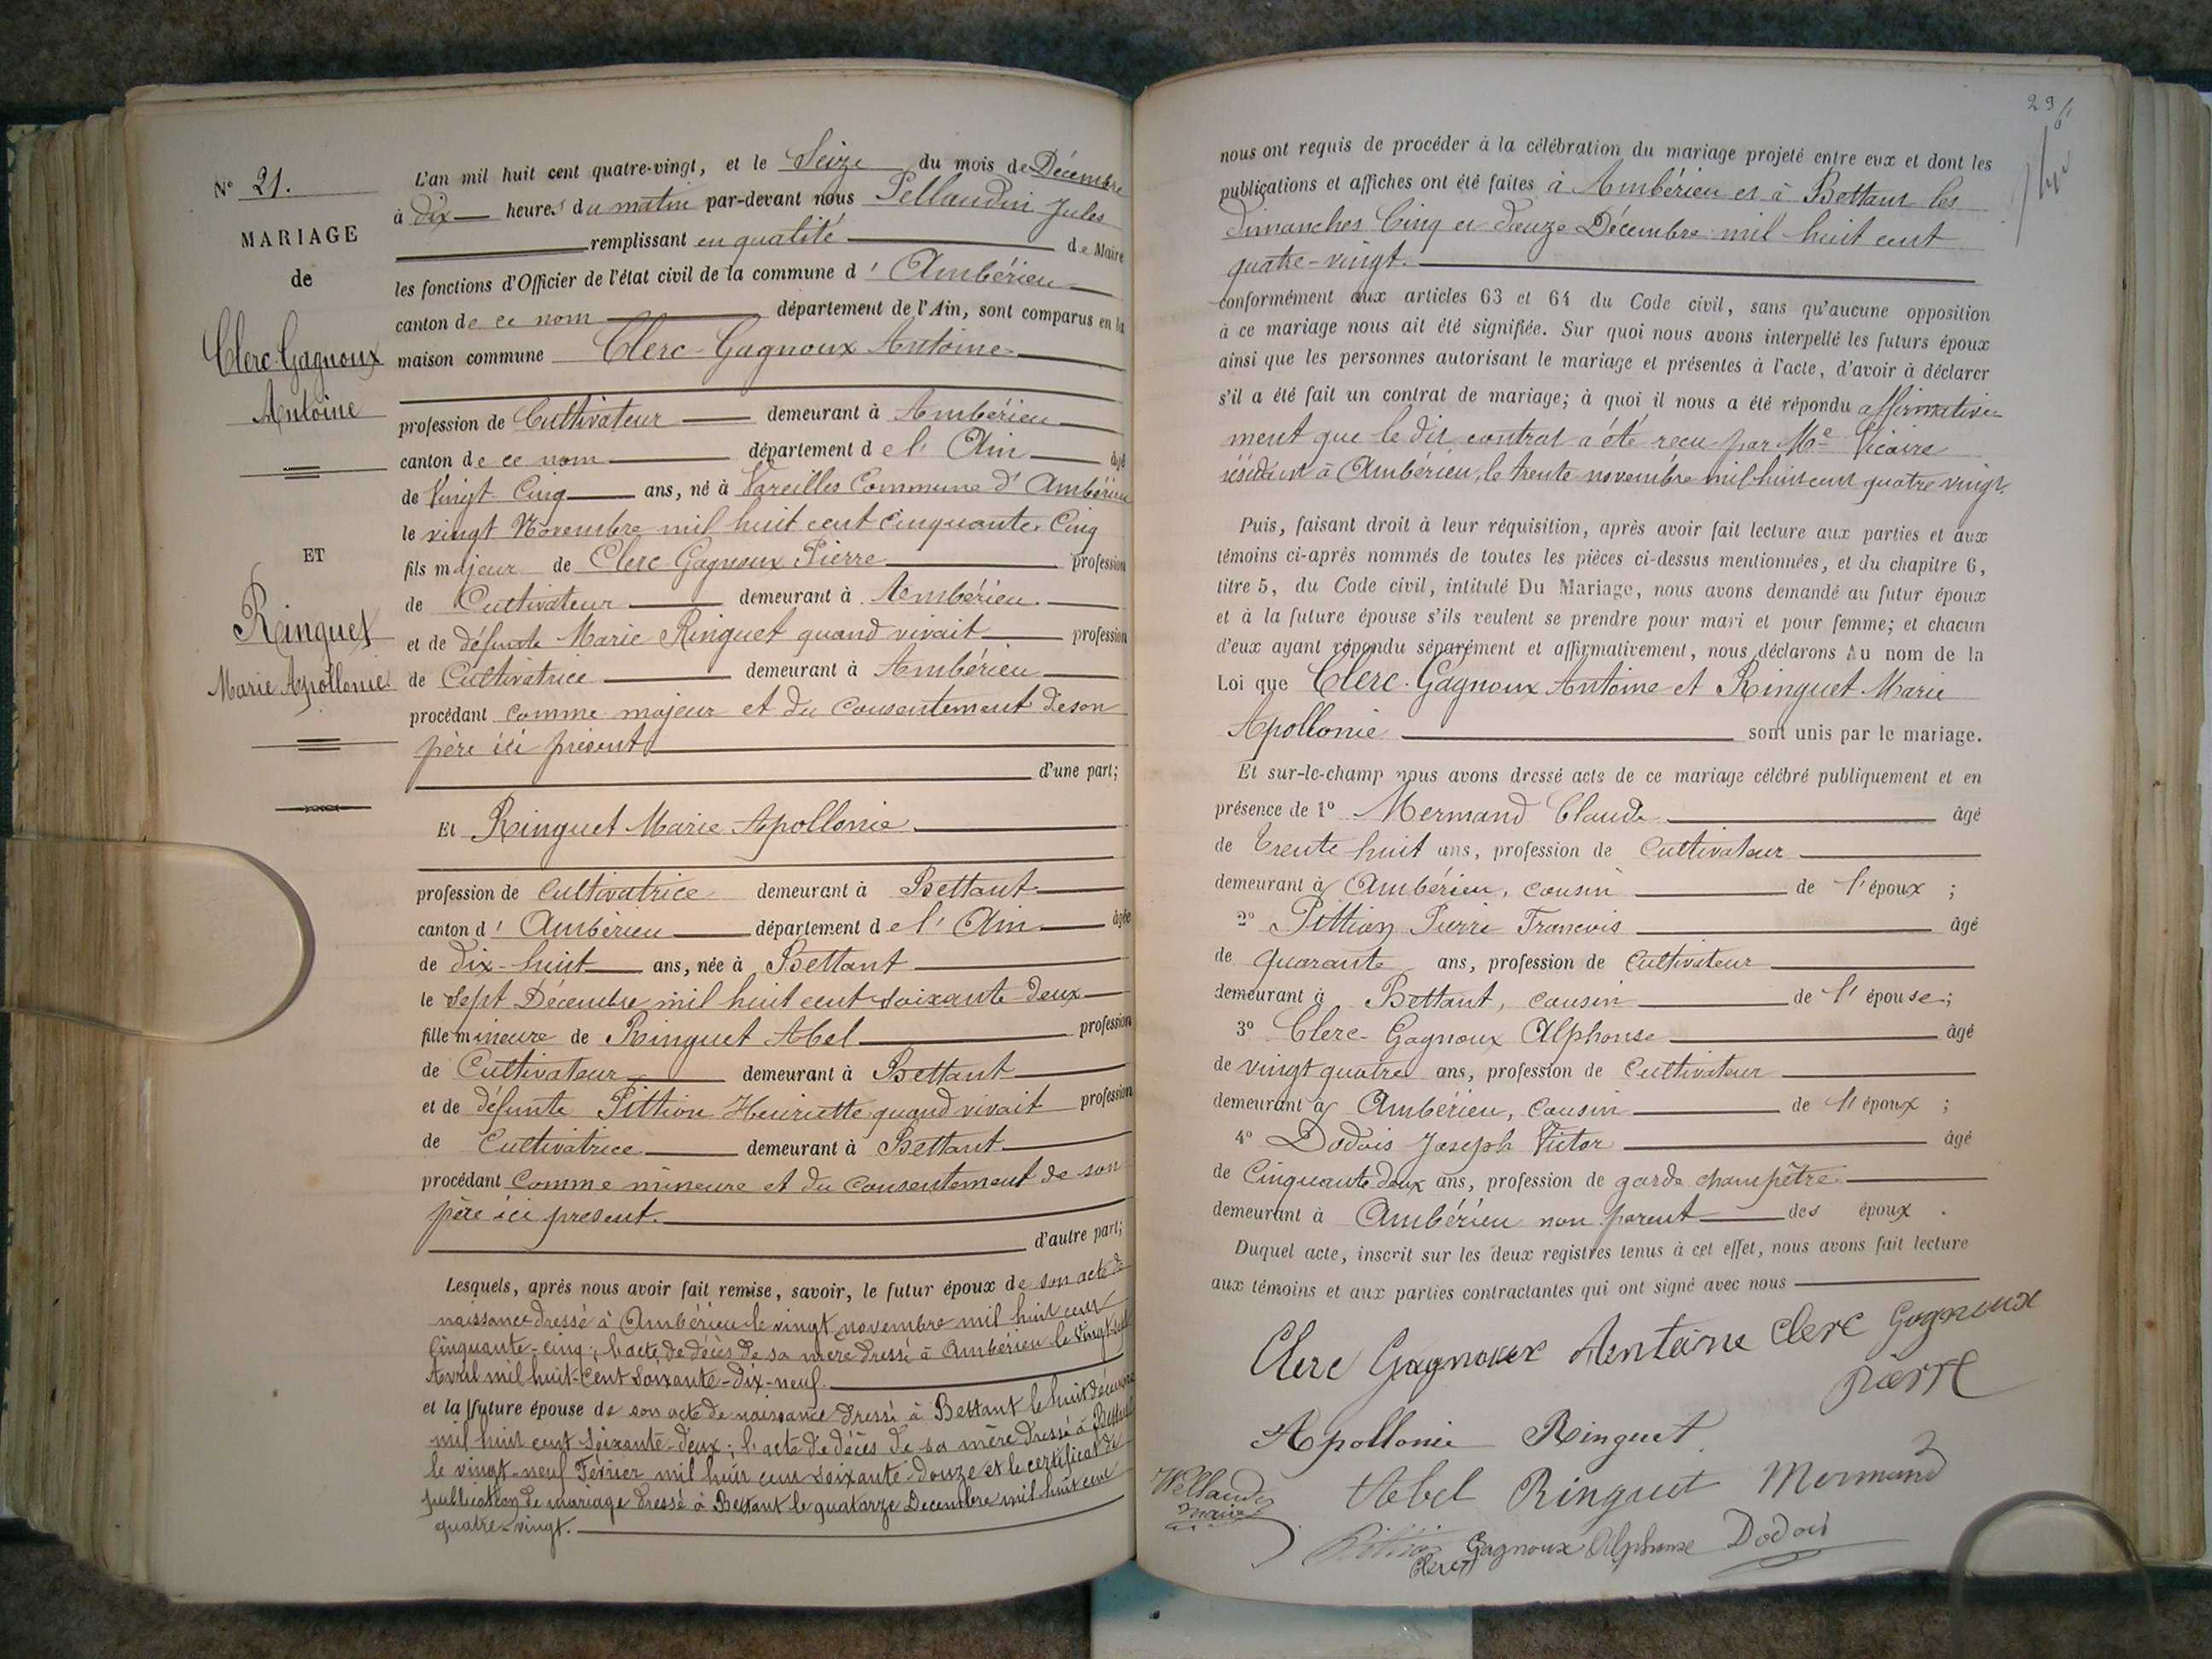 N° 21.
MARIAGE
de
Clerc-Gagnoux
Antoine
ET
Ringuet
Marie Apollonie
L'an mil huit cent quatre-vingt, et le Seize du mois de Décembre
à dix heures du matin par-devant nous Pellaudin Jules
remplissant en qualité de Maire
les fonctions d'Officier de l'état civil de la commune d'Ambérieu
canton de ce nom département de l'Ain, sont comparus en la
maison commune Clerc-Gagnoux Antoine
profession de Cultivateur demeurant à Ambérieu
canton de ce nom département de l'Ain âgé
de Vingt Cinq ans, né à Vareilles Commune d'Ambérieu
le vingt Novembre mil huit cent cinquante-Cinq
fils majeur de Clerc-Gagnoux Pierre profession
de Cultivateur demeurant à Ambérieu.
et de défunte Marie Ringuet quand vivait profession
de Cultivatrice demeurant à Ambérieu
procédant comme majeur et du consentement de son
père ici présent
d'une part;
Et Ringuet Marie Apollonie
profession de Cultivatrice demeurant à Bettant
canton d'Ambérieu département de l'Ain âgée
de dix-huit ans, née à Bettant
le sept Décembre mil huit cent soixante-deux
fille mineure de Ringuet Abel profession
de Cultivateur demeurant à Bettant
et de défunte Pittion Henriette quand vivait profession
de Cultivatrice demeurant à Bettant
procédant comme mineure et du consentement de son
père ici présent.
d'autre part;
Lesquels, après nous avoir fait remise, savoir, le futur époux de son acte de
naissance dressé à Ambérieu le vingt novembre mil huit cent
cinquante-cinq; l'acte de décès de sa mère dressé à Ambérieu le vingt
Avril mil huit-cent soixante-dix-neuf.
et la future épouse de son acte de naissance dressé à Bettant le huit décembre
mil huit cent soixante-deux; l'acte de décès de sa mère dressé à Bettant
le vingt-neuf Février mil huit cent soixante-douze et le certificat de
publication de mariage dressé à Bettant le quatorze Décembre mil huit cent
quatre-vingt.
29
nous ont requis de procéder à la célébration du mariage projeté entre eux et dont les
publications et affiches ont été faites à Ambérieu et à Bettant les
dimanches Cinq et douze Décembre mil huit cent
quatre-vingt.
conformément aux articles 63 et 64 du Code civil, sans qu'aucune opposition
à ce mariage nous ait été signifiée. Sur quoi nous avons interpellé les futurs époux
ainsi que les personnes autorisant le mariage et présentes à l'acte, d'avoir à déclarer
s'il a été fait un contrat de mariage; à quoi il nous a été répondu affirmative-
ment que le dit contrat a été reçu par Me Vicaire
résidant à Ambérieu, le trente novembre mil huit cent quatre vingt.
Puis, faisant droit à leur réquisition, après avoir fait lecture aux parties et aux
témoins ci-après nommés de toutes les pièces ci-dessus mentionnées, et du chapitre 6,
titre 5, du Code civil, intitulé Du Mariage, nous avons demandé au futur époux
et à la future épouse s'ils veulent se prendre pour mari et pour femme; et chacun
d'eux ayant répondu séparément et affirmativement, nous déclarons Au nom de la
Loi que Clerc-Gagnoux Antoine et Ringuet Marie
Apollonie sont unis par le mariage.
Et sur-le-champ nous avons dressé acte de ce mariage célébré publiquement et en
présence de 1° Mermand Claude âgé
de trente huit ans, profession de Cultivateur
demeurant à Ambérieu, cousin de l'époux ;
2° Pittion Pierre Francois âgé
de quarante ans, profession de Cultivateur
demeurant à Bettant, cousin de l'épouse;
3° Clerc-Gagnoux Alphonse âgé
de vingt quatre ans, profession de Cultivateur
demeurant à Ambérieu, Cousin de l'époux ;
4° Dodois Joseph Victor âgé
de Cinquante deux ans, profession de garde champêtre
demeurant à Ambérieu non parent des époux .
Duquel acte, inscrit sur les deux registres tenus à cet effet, nous avons fait lecture
aux témoins et aux parties contractantes qui ont signé avec nous
Clerc Gagnoux Antoine Clerc Gagnoux
pierre
Apollonie Ringuet
Abel Ringuet Mermand
Pellaudin
maire
Pittion Gagnoux Alphonse Dodois
Clerc